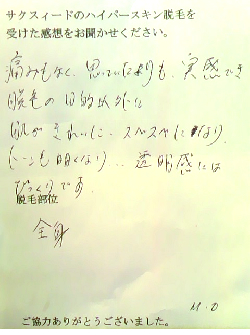 サクスィードのハイパースキン脱毛を
受けた感想をお聞かせください。
痛みもなく、思っていたよりも、実感でき
脱毛の目的以外に
肌がきれいに、スベスベになり、
トーンも明るくなり、、透明感には
びっくりです
脱毛部位
全身
M.O
ご協力ありがとうございました。